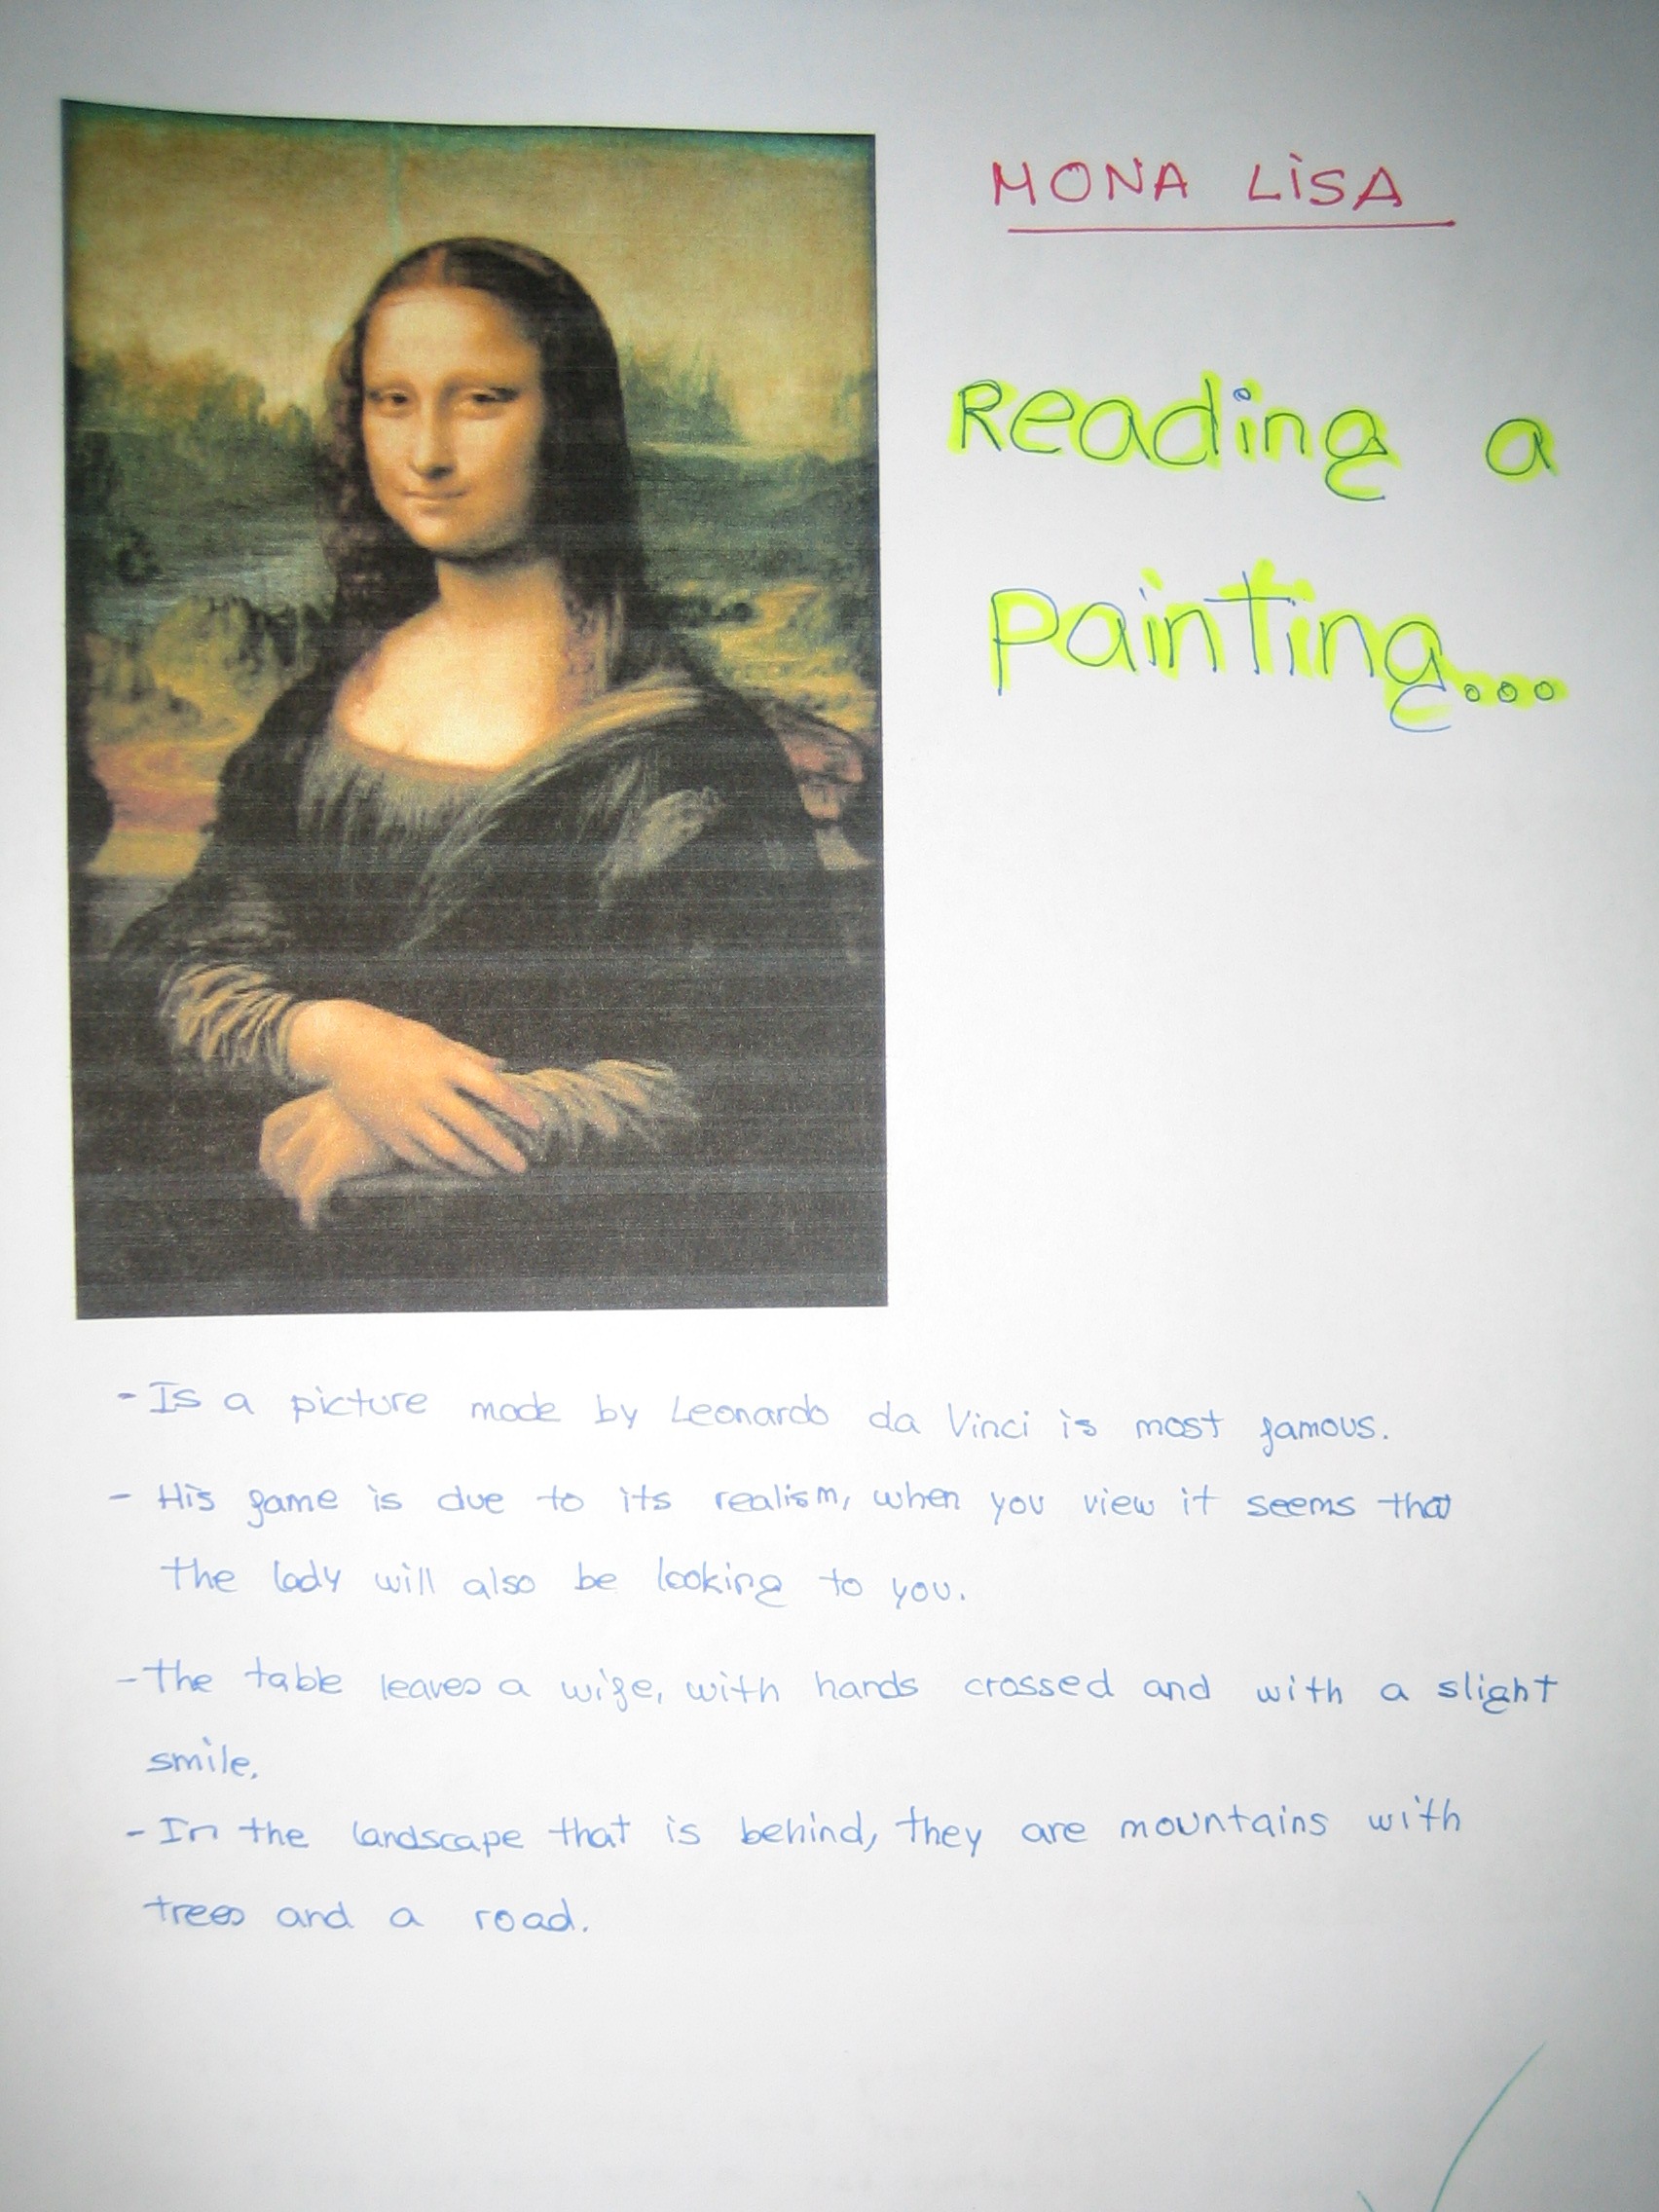 MONA LiSA
Reading a
painting...
- Is a picture made by Leonardo da Vinci is most famous.
- His fame is due to its realism, when you view it seems that
the lady will also be looking to you.
- The table leaves a wife, with hands crossed and with a slight
smile.
- In the landscape that is behind, they are mountains with
trees and a road.